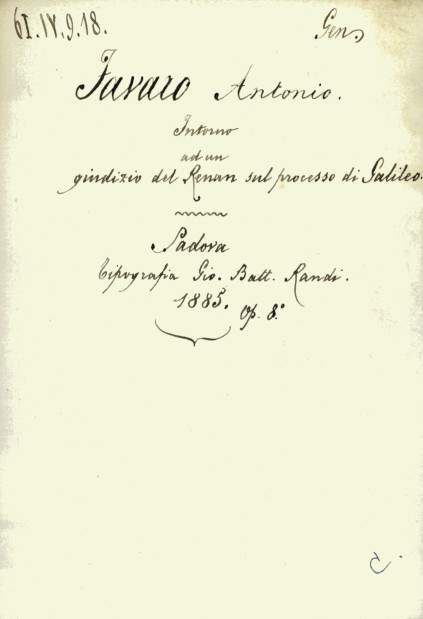 61.IV.9.18.
Gen.
Favaro Antonio.
Intorno
ad un
giudizio del Renan sul processo di Galileo.
Padova
tipografia Gio. Batt. Randi.
1885. Op. 8.°
C.